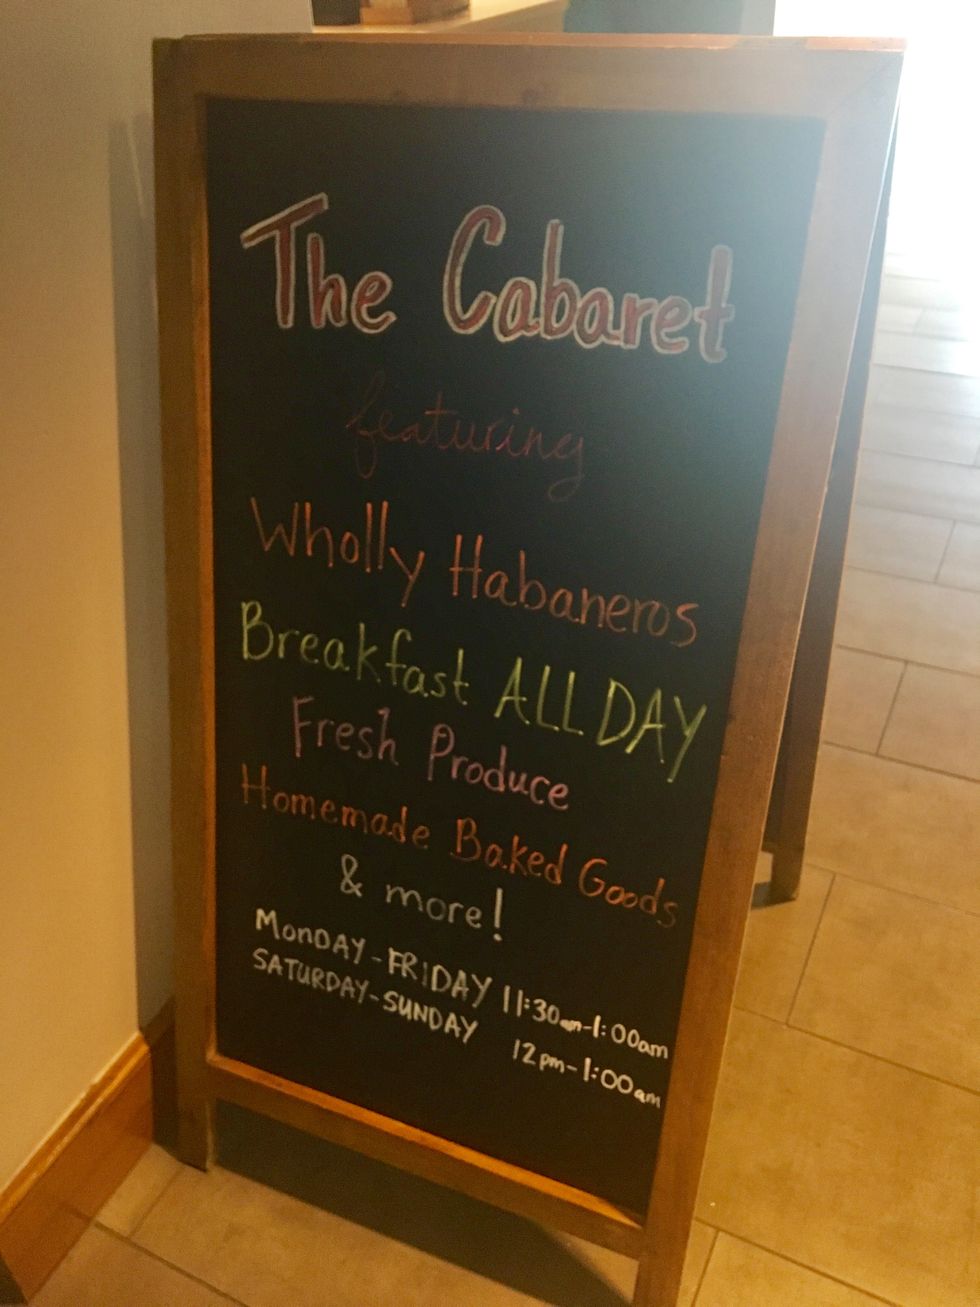 The Cabaret
featuring
Wholly Habaneros
Breakfast ALL DAY
Fresh Produce
Homemade Baked Goods
& more!
MONDAY-FRIDAY 11:30am-1:00am
SATURDAY-SUNDAY 12pm-1:00am